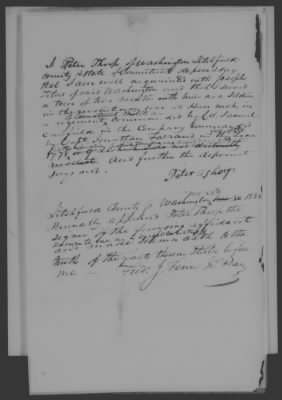 I Peter Thorp of Washington Litchfield
County & State of Connecticut depose & say
that I am well acquainted with Joseph
Titus of said Washington and that I served
a tour of two months with him as a soldier
in the revolutionary war at Horse neck in
a regiment commanded by Col. Samuel
Canfield in the Company commanded
by Capt. Jonathan Farrand in the year
177
recollect. And further the deponent
says not.
Peter Thorp
Litchfield County Washington 1832
Personally appeared Peter Thorp the
signer of the foregoing affidavit
and made solemn oath to the
truth of the facts therein stated before
me
Fred. J. Fenn